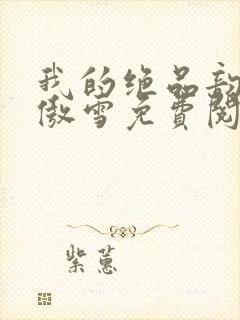 我的绝品
傲雪免費閱
紫蕙